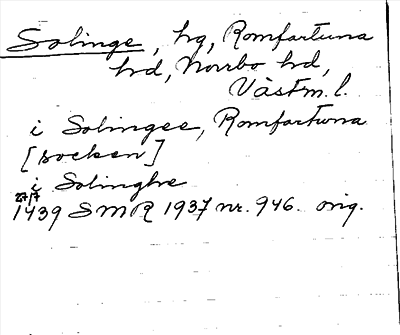 Solinge, hg, Romfartuna
hd, Norrbo hd,
Västm. l.
i Solingee, Romfartuna
[socken]
i Solinghe
27/7
1439 SMR 1937 nr. 946. orig.